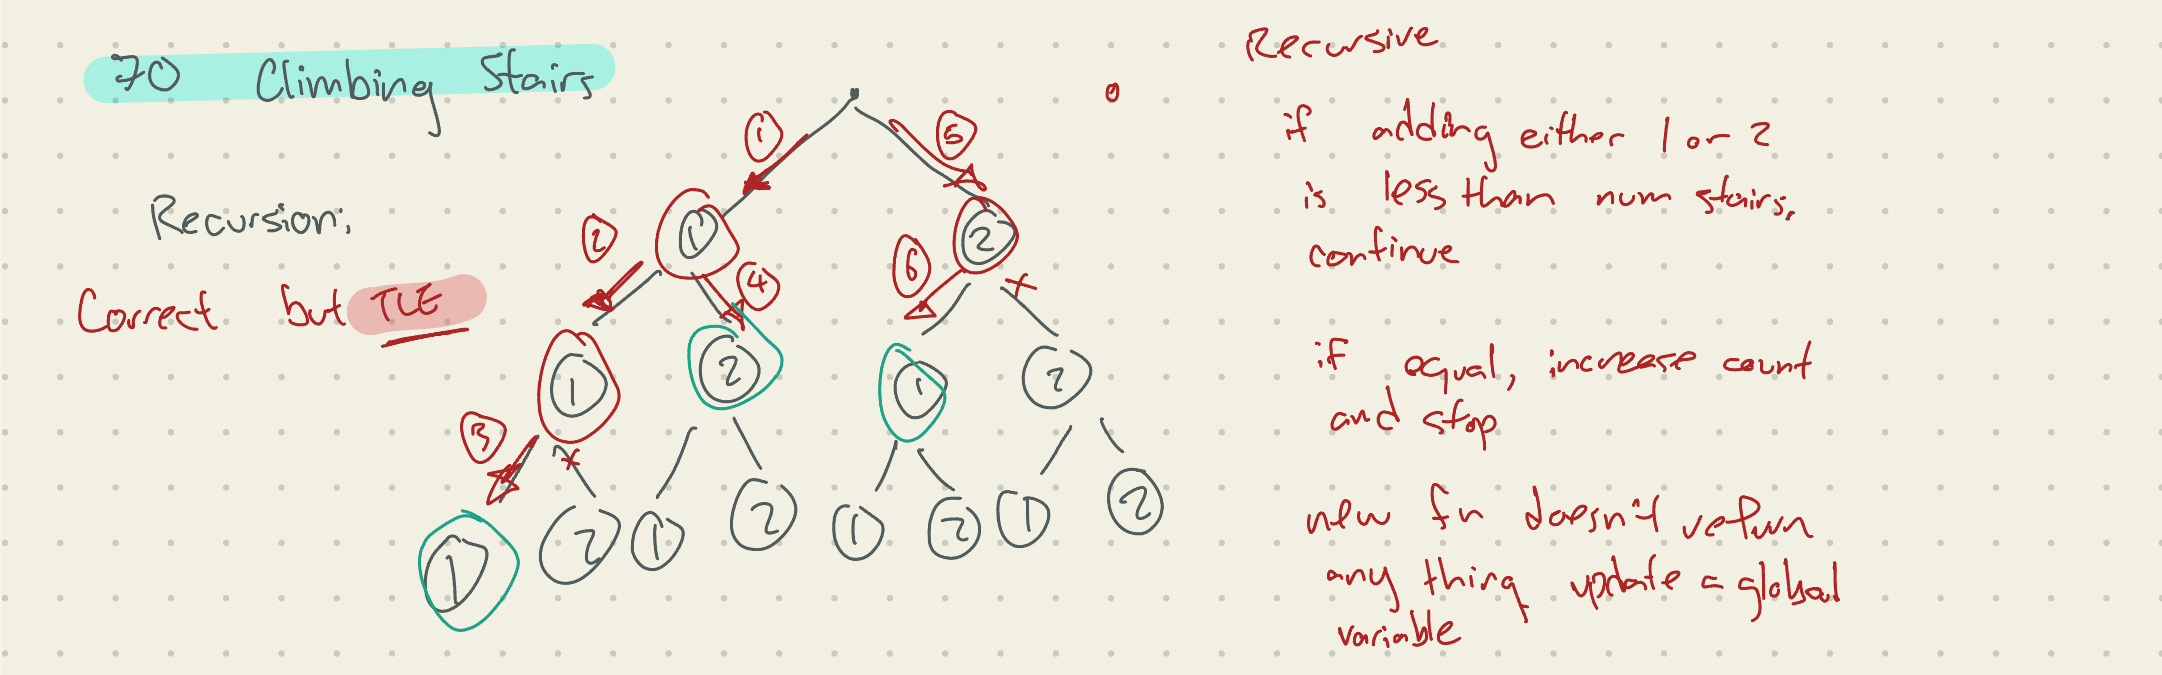 70 Climbing Stairs
Recursion:
Correct but TLE
0
1 5
2 1 4 6 2
x
1 2 1 2
3 x
1 2 1 2 1 2 1 2
Recursive
if adding either 1 or 2
is less than num stairs,
continue
if equal, increase count
and stop
new fn doesn't return
any thing update a global
variable